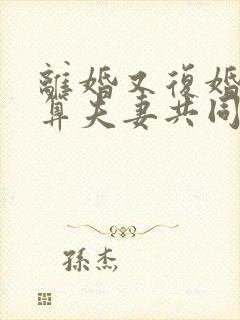 離婚又復婚
算夫妻共同
孫杰